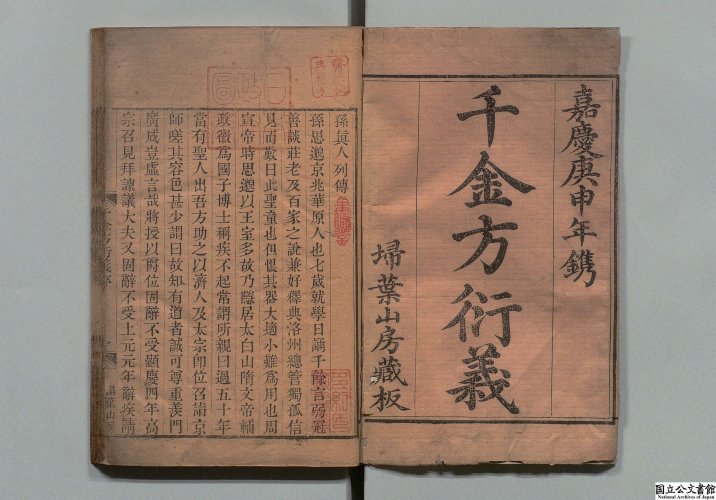 嘉慶庚申年鐫
千金方衍義
埽葉山房藏板
孫眞人列傳
孫思邈京兆華原人也七歲就學日誦千餘言弱冠
善談莊老及百家之說兼好釋典洛州總管獨孤信
見而歎曰此聖童也但恨其器大適小難爲用也周
宣帝時思邈以王室多故乃隱居太白山隋文帝輔
政徵爲國子博士稱疾不起常謂所親曰過五十年
當有聖人出吾方助之以濟人及太宗卽位召詣京
師嗟其容色甚少謂曰故知有道者誠可尊重羨門
廣成豈虛言哉將授以爵位固辭不受顯慶四年高
宗召見拜諫議大夫又固辭不受上元元年辭疾請
埽葉山房
国立公文書館
National Archives of Japan